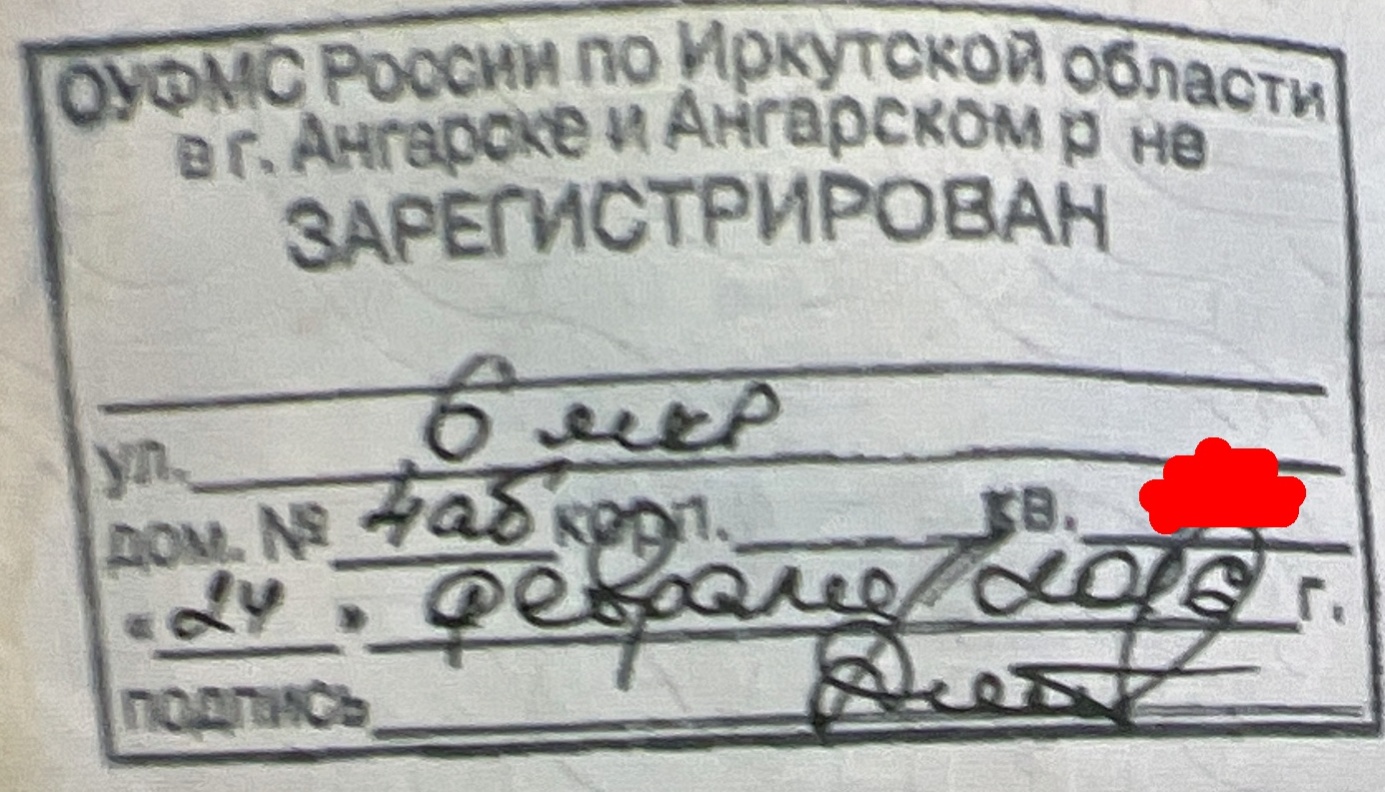 ОУФМС России по Иркутской области
в г. Ангарске и Ангарском р не
ЗАРЕГИСТРИРОВАН
ул. 6 мкр
дом. № 4аб корп. кв.
« 24 » февраля 2016 г.
подпись